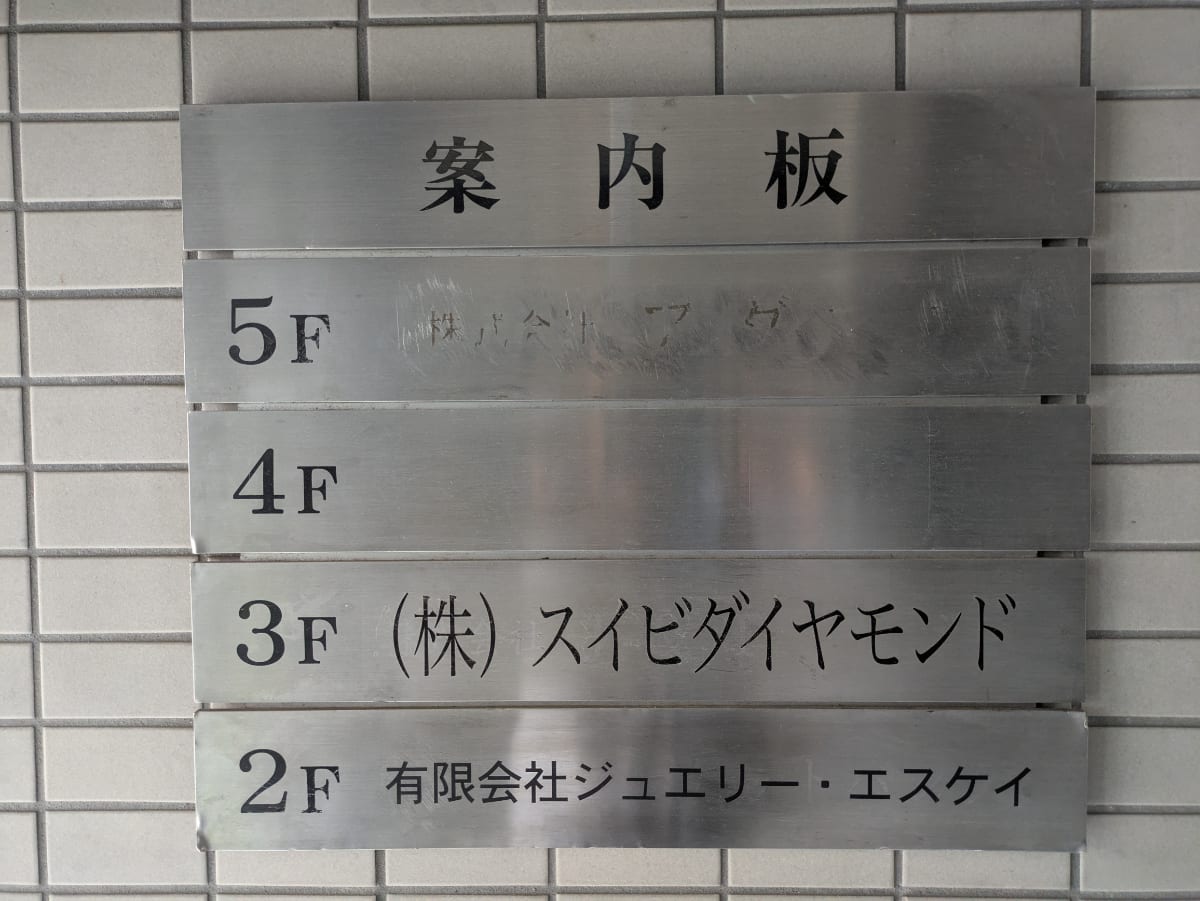 案内板
5F 株式会社
4F
3F (株) スイビダイヤモンド
2F 有限会社ジュエリー・エスケイ